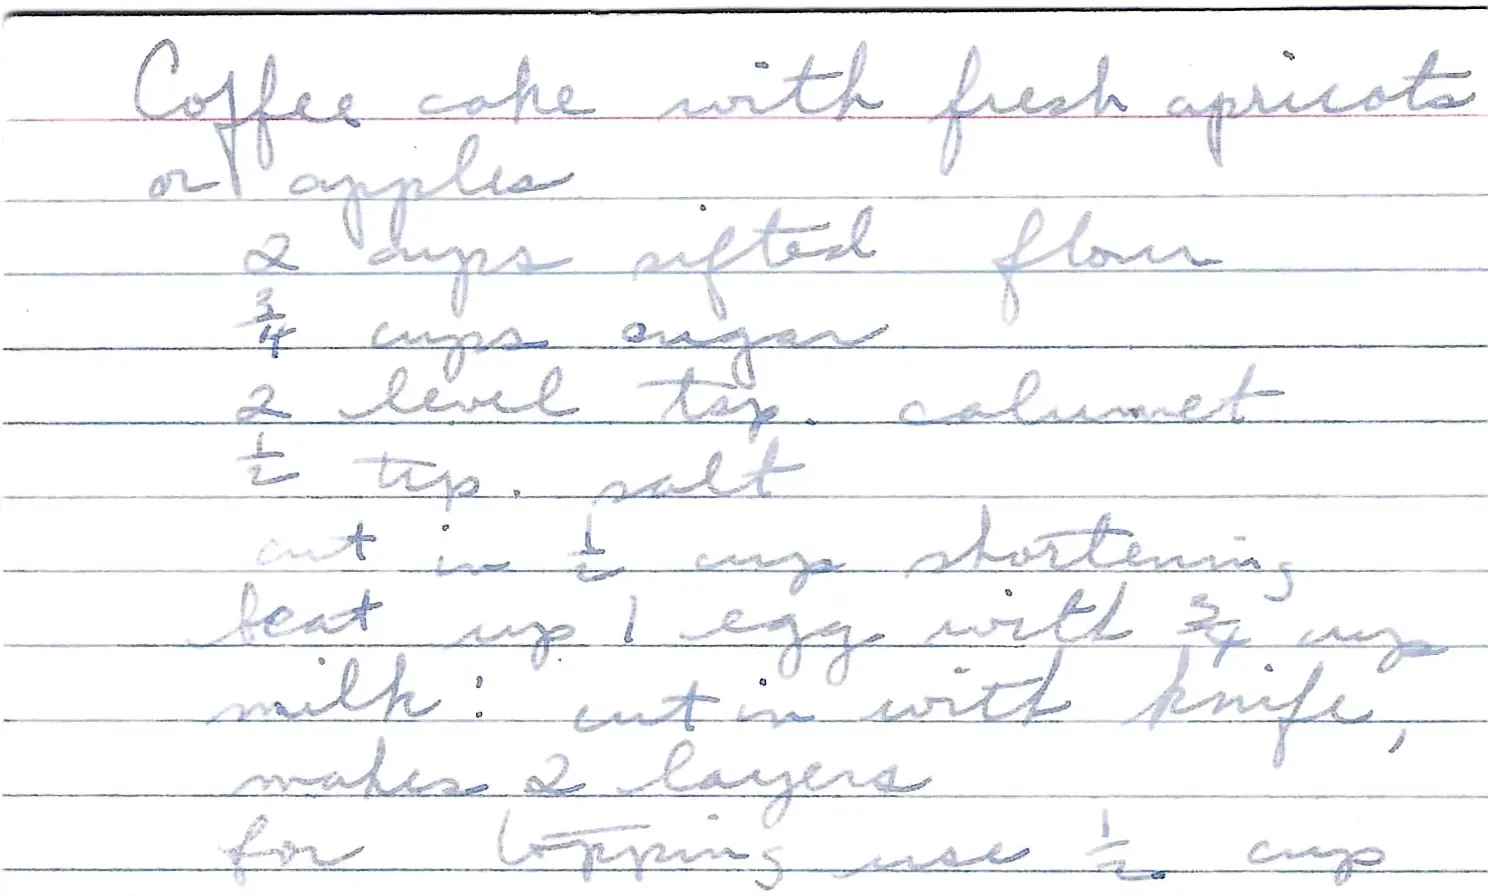 Coffee cake with fresh apricots
or apples
2 cups sifted flour
3/4 cups sugar
2 level tsp. calumet
1/2 tsp. salt
cut in 1/2 cup shortening
beat up 1 egg with 3/4 cup
milk: cut in with knife,
makes 2 layers
for topping use 1/2 cup